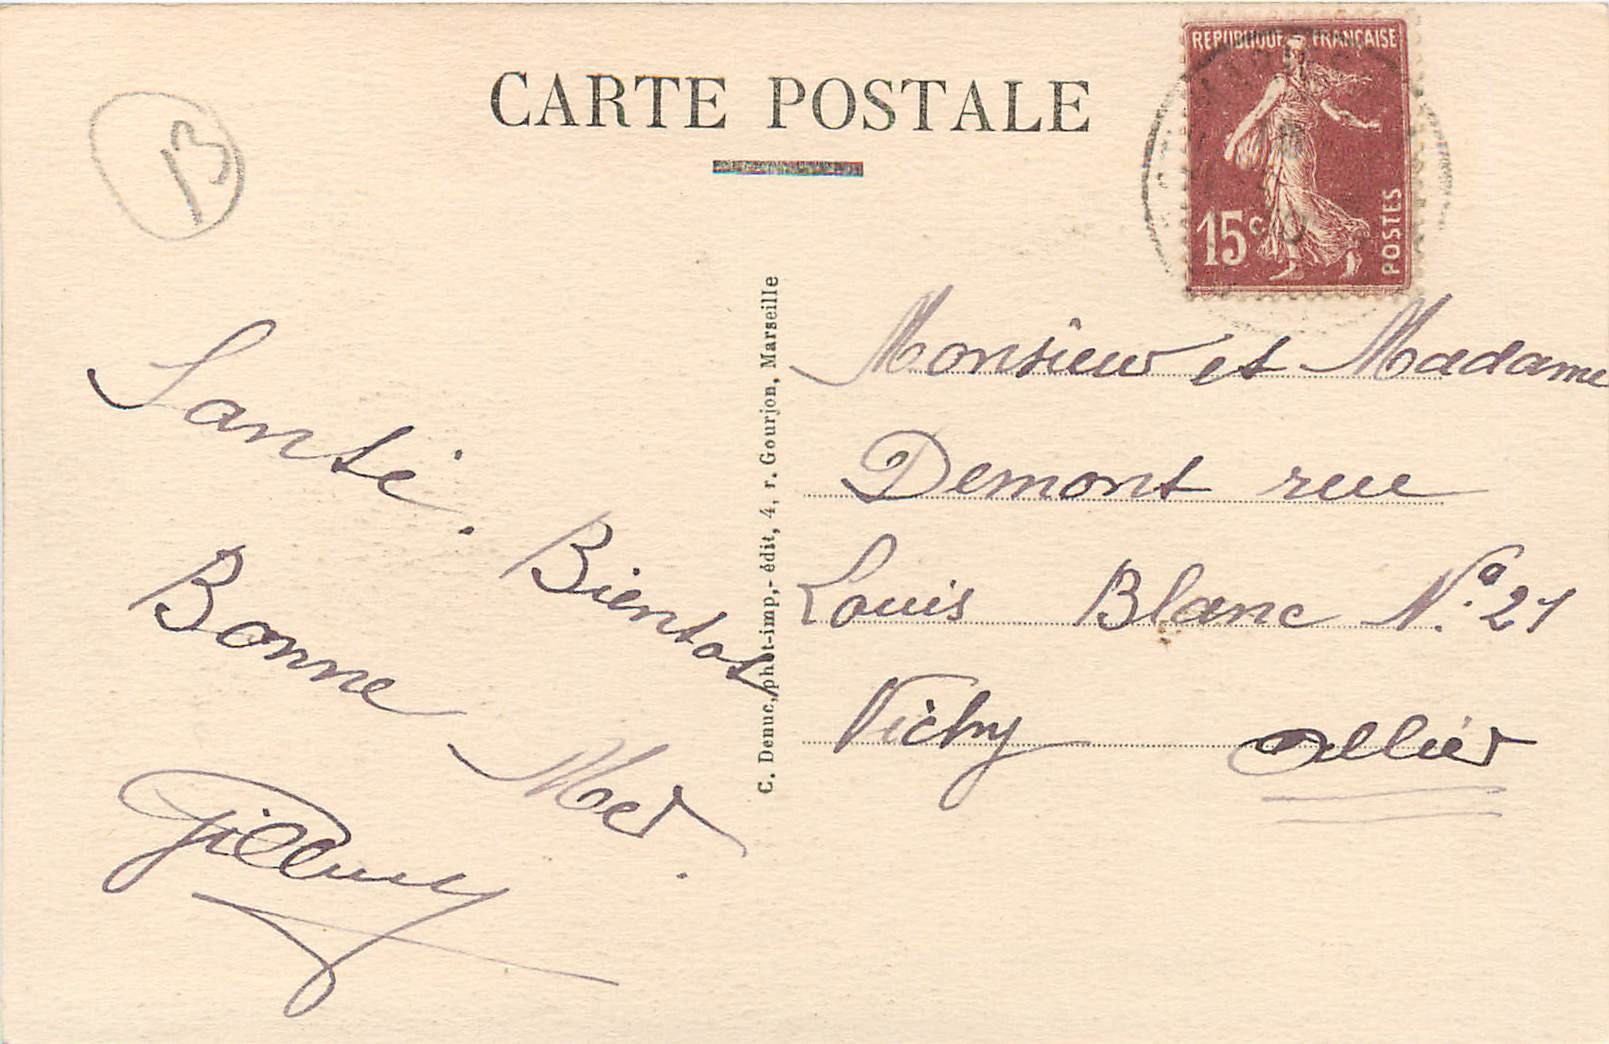 CARTE POSTALE
13
REPUBLIQUE FRANÇAISE
15c
POSTES
Santé. Bientot
Bonne Mer.
C. Denuc, phot-imp,- édit, 4, r. Gourjon, Marseille
Monsieur et Madame
Demont rue
Louis Blanc No. 21
Vichy Allier